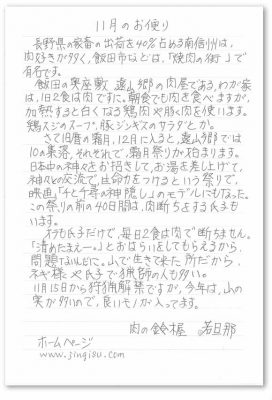 11月のお便り
長野県の家畜の出荷を40%占める南信州は、
肉好きが多く、飯田市などは、「焼肉の街」で
有名です。
飯田の奥座敷 遠山郷の肉屋であるわが家
は、1日2食は肉です。朝食でも肉を食べますが、
加熱すると白くなる鶏肉や豚肉を使います。
鶏スジのスープ、豚ジンギスのサラダとか。
さて旧暦の霜月、12月に入ると、遠山郷では
10の集落、それぞれで、霜月祭りが始まります。
日本中の神々をお招きして、お湯を差し上げて、
神々との交流で、生命力をつけるという祭りで、
映画「千と千尋の神隠し」のモデルにもなった。
この祭りの前の40日間は、肉断ちをする氏子も
います。
オラも氏子だけど、毎日2食は肉で断ちません。
「清めたまえー。」とおはらいをしてもらえるから、
問題ないんだに。山で生きて来た所だから、
ネギ様や氏子で猟師の人も多い。
11月15日から狩猟解禁ですが、今年は、山の
実が多いので、良いモノが入ってます。
肉の鈴木屋 若旦那
ホームページ
www.jingisu.com